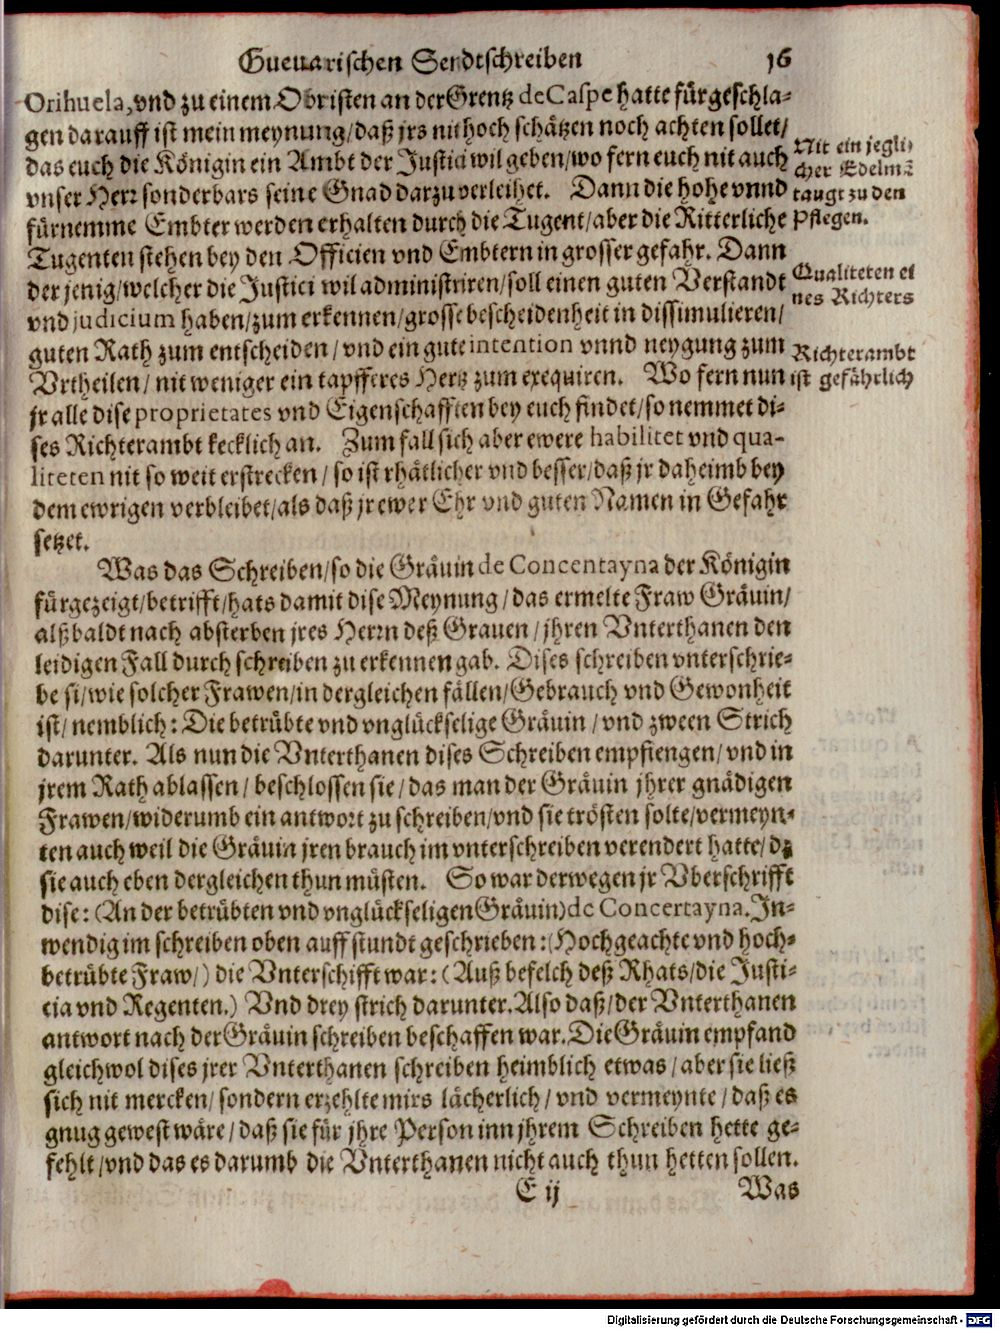 Gueuarischen Sendtschreiben 16
Orihuela, vnd zu einem Obristen an der Grentz de Caspe hatte fürgeschla-
gen darauff ist mein meynung/ daß jrs nit hoch schätzen noch achten sollet/
das euch die Königin ein Ambt der Justici wil geben/ wo fern euch nit auch
vnser Herr sonderbars seine Gnad darzu verleihet. Dann die hohe vnnd
fürnemme Embter werden erhalten durch die Tugent/ aber die Ritterliche
Tugenten stehen bey den Officien vnd Embtern in grosser gefahr. Dann
der jenig/ welcher die Justici wil administriren/ soll einen guten Verstandt
vnd judicium haben/ zum erkennen/ grosse bescheidenheit in dissimulieren/
guten Rath zum entscheiden/ vnd ein gute intention vnnd neygung zum
Vrtheilen/ nit weniger ein tapfferes Hertz zum exequiren. Wo fern nun
jr alle dise proprietates vnd Eigenschafften bey euch findet/ so nemmet di-
ses Richterambt kecklich an. Zum fall sich aber ewere habilitet vnd qua-
liteten nit so weit erstrecken/ so ist rhätlicher vnd besser/ daß jr daheimb bey
dem ewrigen verbleibet/ als daß jr ewer Ehr vnd guten Namen in Gefahr
setzet.
Nit ein jegli-
cher Edelmã
taugt zu den
Pflegen.
Qualiteten ei
nes Richters
Richterambt
ist gefährlich
Was das Schreiben/ so die Gräuin de Concentayna der Königin
fürgezeigt/ betrifft/ hats damit dise Meynung/ das ermelte Fraw Gräuin/
alßbaldt nach absterben jres Herrn deß Grauen/ jhren Vnterthanen den
leidigen Fall durch schreiben zu erkennen gab. Dises schreiben vnterschrie-
be si/ wie solcher Frawen/ in dergleichen fällen/ Gebrauch vnd Gewonheit
ist/ nemblich: Die betrübte vnd vnglückselige Gräuin/ vnd zween Strich
darunter. Als nun die Vnterthanen dises Schreiben empfiengen/ vnd in
jrem Rath ablassen/ beschlossen sie/ das man der Gräuin jhrer gnädigen
Frawen/ widerumb ein antwort zu schreiben/ vnd sie trösten solte/ vermeyn-
ten auch weil die Gräuin jren brauch im vnterschreiben verendert hatte/ dz
sie auch eben dergleichen thun müsten. So war derwegen jr Vberschrifft
dise: (An der betrübten vnd vnglückseligen Gräuin) de Concertayna. In-
wendig im schreiben oben auff stundt geschrieben: (Hochgeachte vnd hoch-
betrübte Fraw/) die Vnterschifft war: (Auß befelch deß Rhats/ die Justi-
cia vnd Regenten.) Vnd drey strich darunter. Also daß/ der Vnterthanen
antwort nach der Gräuin schreiben beschaffen war. Die Gräuin empfand
gleichwol dises jrer Vnterthanen schreiben heimblich etwas/ aber sie ließ
sich nit mercken/ sondern erzehlte mirs lächerlich/ vnd vermeynte/ daß es
gnug gewest wäre/ daß sie für jhre Person inn jhrem Schreiben hette ge-
fehlt/ vnd das es darumb die Vnterthanen nicht auch thun hetten sollen.
E ij Was
Digitalisierung gefördert durch die Deutsche Forschungsgemeinschaft - DFG